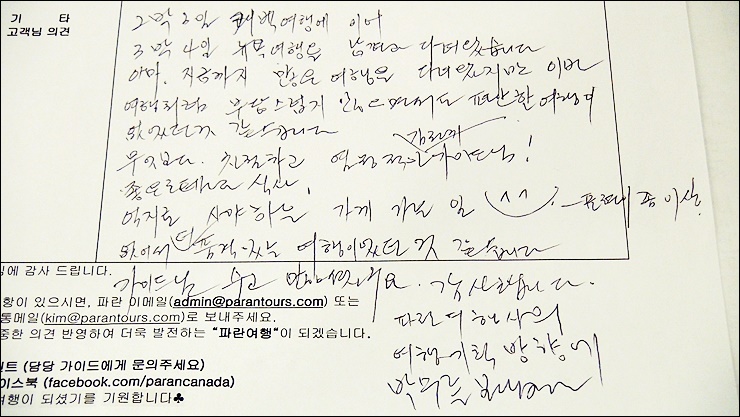 기 타
고객님 의견
2박 3일 퀘백여행에 이어
3박 4일 뉴욕여행을 남편과 다녀왔습니다
아마, 지금까지 많은 여행을 다녀왔지만 이번
여행처럼 부담스럽지 않으면서도 편안한 여행이
없었던것 같습니다
무엇보다. 친절하고 열정적인 가이드님!
좋은 호텔과 식사,
억지로 사야하는 가게 가는 일 ^^ 표현이 좀 이상?
없어서 더 품격있는 여행이었던 것 같습니다
가이드님 수고 많아셨어요. 감사합니다.
파란여행사의
여행기획 방향에
박수를 보내며
님에 감사 드립니다.
항이 있으시면, 파란 이메일(admin@parantours.com) 또는
통메일(kim@parantours.com)로 보내주세요.
중한 의견 반영하여 더욱 발전하는 "파란여행"이 되겠습니다.
인트 (담당 가이드에게 문의주세요)
이스북 (facebook.com/parancanada)
여행이 되셨기를 기원합니다♣